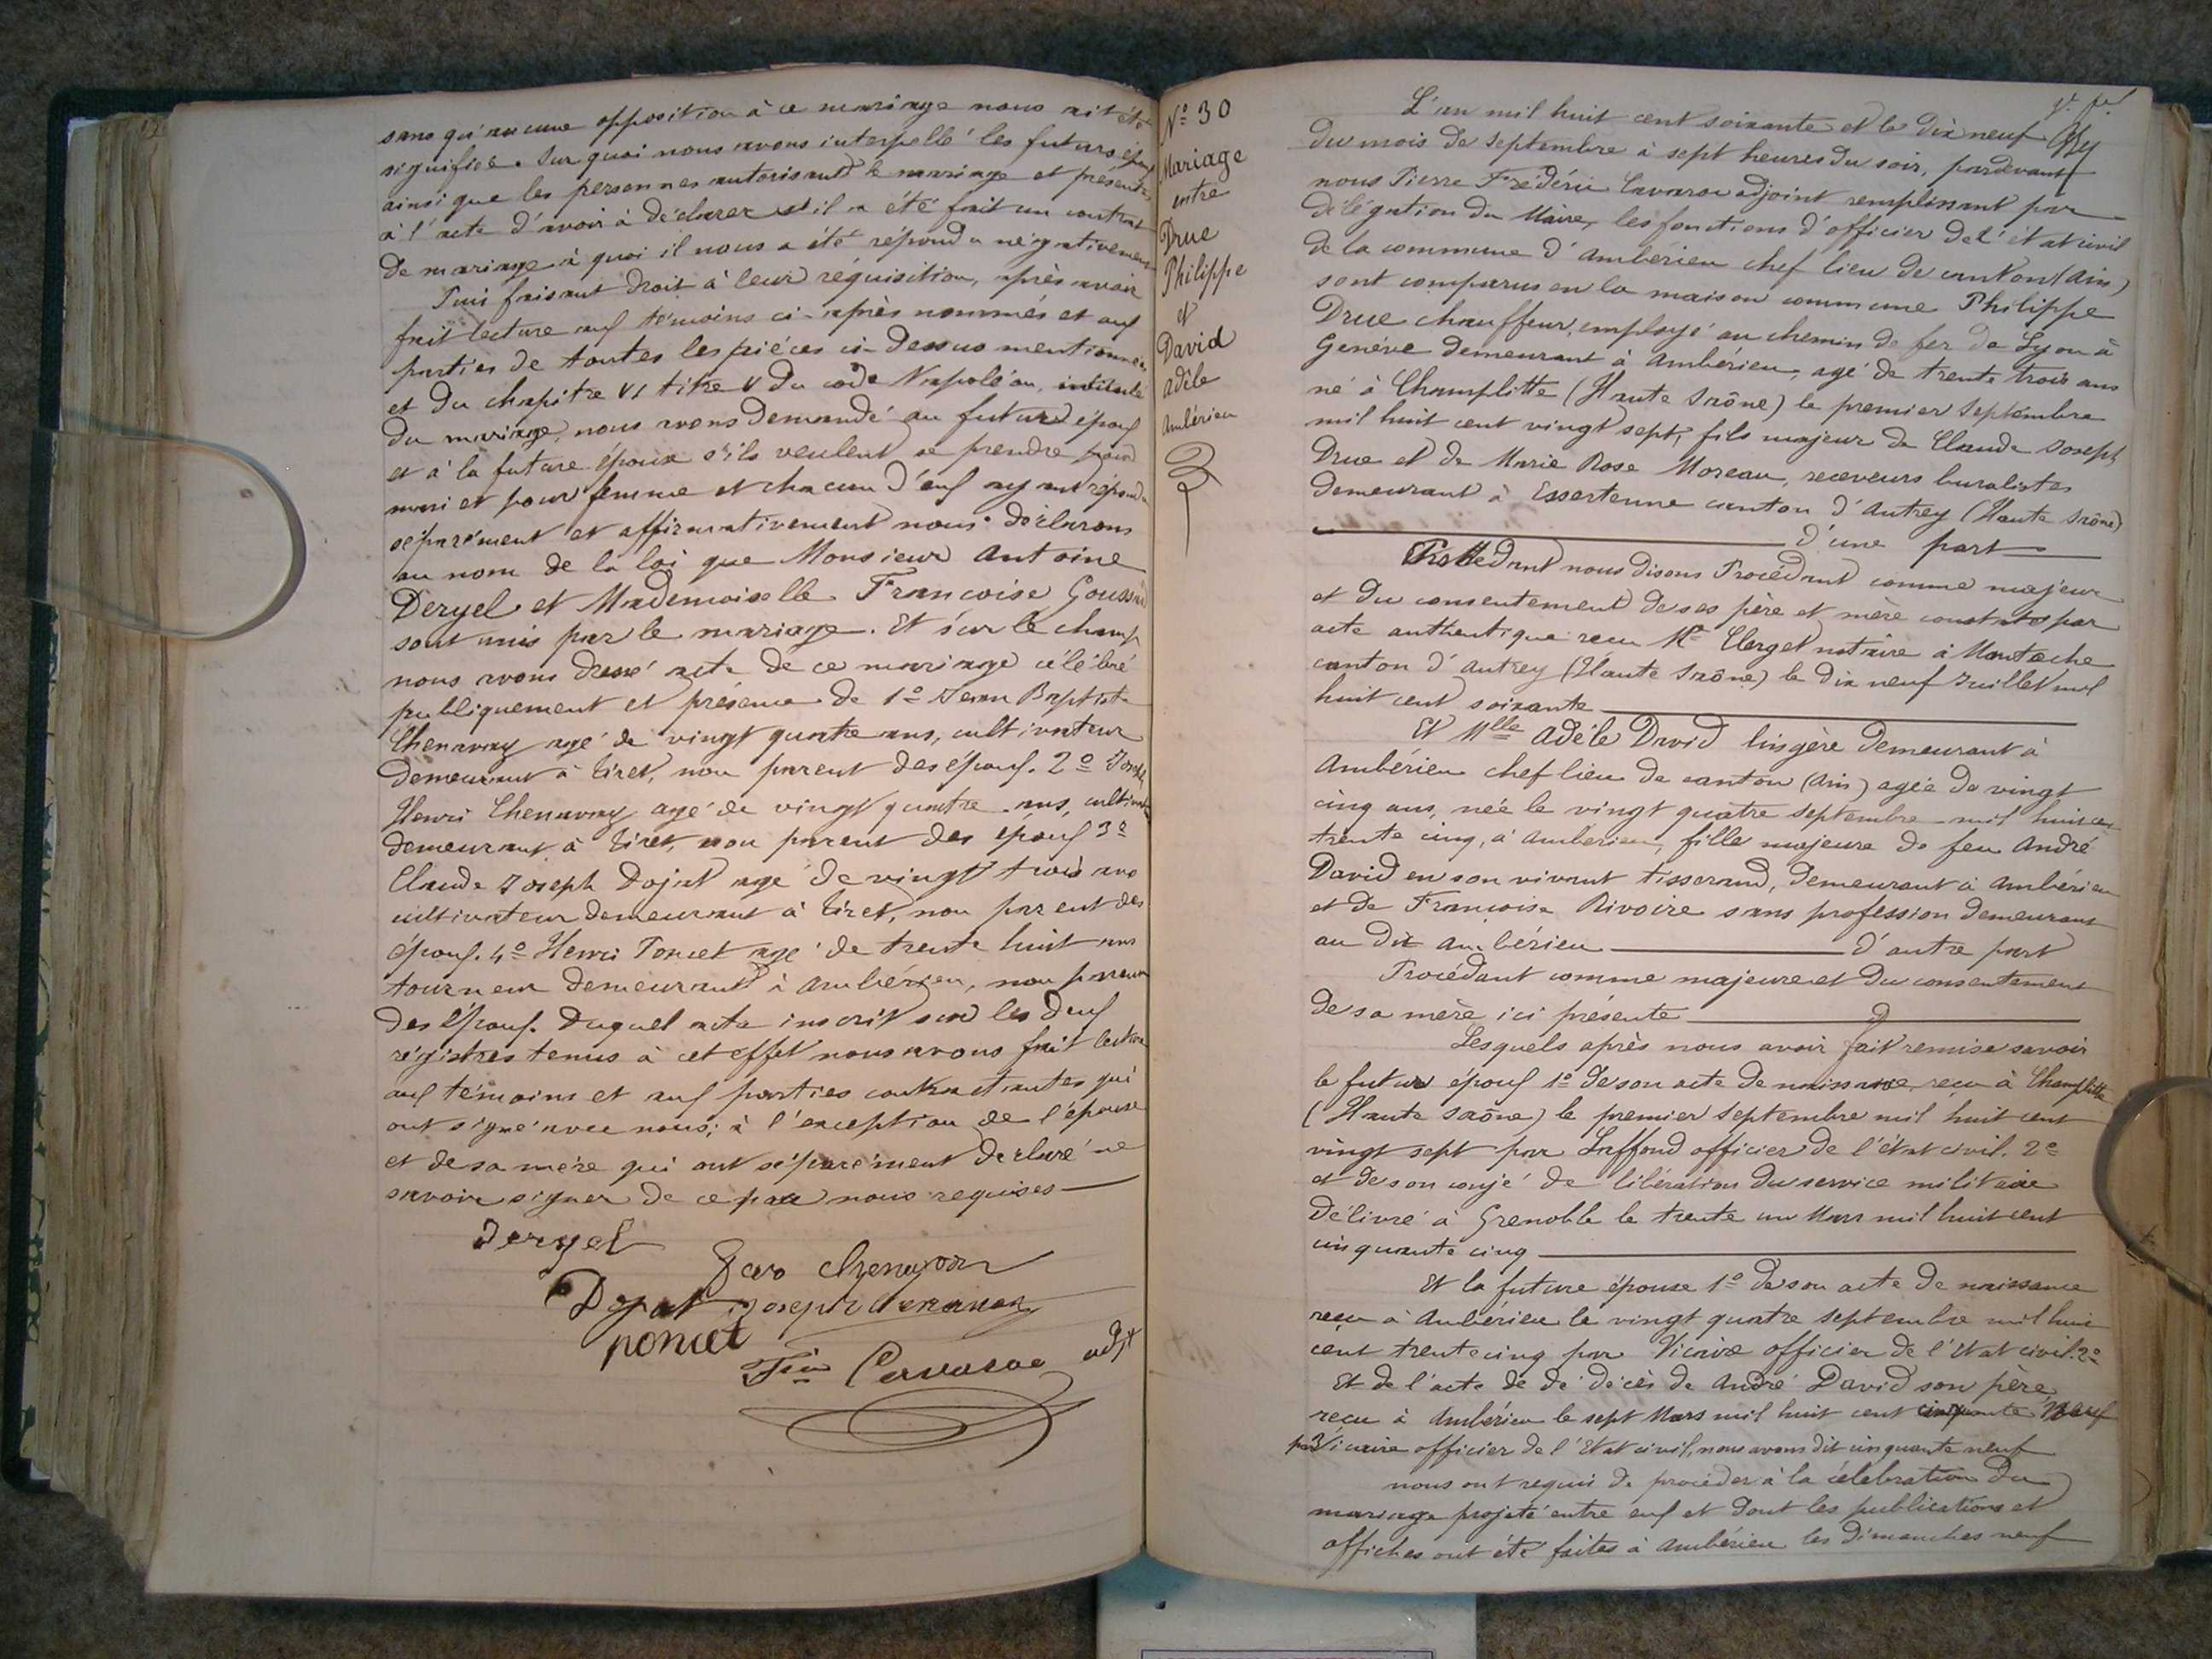 sans qu'aucune opposition à ce mariage nous ait été
signifiée. Sur quoi nous avons interpellé les futurs époux
ainsi que les personnes autorisant le mariage et présentes
à l'acte d'avoir à déclarer s'il a été fait un contrat
de mariage à quoi il nous a été répondu négativement
Puis faisant droit à leur réquisition, après avoir
fait lecture aux témoins ci-après nommés et aux
parties de toutes les pièces ci-dessus mentionnées
et du chapitre VI titre V du code Napoléon, intitulé
du mariage, nous avons demandé au futur époux
et à la future épouse s'ils veulent se prendre pour
mari et pour femme et chacun d'eux ayant répondu
séparément et affirmativement nous déclarons
au nom de la loi que Monsieur Antoine
Deryel et Mademoiselle Françoise
sont unis par le mariage. Et sur le champ
nous avons dressé acte de ce mariage célébré
publiquement et présence de 1º Jean Baptiste
Chenavay agé de vingt quatre ans, cultivateur
demeurant à tiret, non parent des époux. 2º Joseph
Henri Chenavay agé de vingt quatre ans, cultivateur
demeurant à tiret, non parent des époux 3º
Claude Joseph Dojat agé de vingt trois ans
cultivateur demeurant à tiret, non parent des
époux. 4º Henri Poncet agé de trente huit ans
tourneur demeurant à Ambérieu, non parent
des époux. Duquel acte inscrit sur les deux
régistres tenus à cet effet nous avons fait lecture
aux témoins et aux parties contractantes qui
ont signé avec nous; à l'exception de l'épouse
et de sa mère qui ont séparément déclaré ne
savoir signer de ce par nous requises
Deryel
Dojat joseph chenavay
poncet
adjt
Nº 30
Mariage
entre
Drue
Philippe
et
David
Adèle
Ambérieu
L'an mil huit cent soixante et le dix neuf
du mois de Septembre à sept heures du soir, pardevant
nous Pierre Frédéric Cavaroc adjoint remplissant par
délégation du Maire, les fonctions d'officier de l'état civil
de la commune d'Ambérieu chef lieu de canton (Ain)
sont comparus en la maison commune Philippe
Drue chauffeur, employé au chemin de fer de Lyon à
Genève demeurant à Ambérieu, agé de trente trois ans
né à Champlitte (Haute Saône) le premier Septembre
mil huit cent vingt sept, fils majeur de Claude Joseph
Drue et de Marie Rose Moreau, receveurs buralistes
demeurant à Essertenne canton d'Autrey (Haute Saône)
d'une part
nous disons Procédant comme majeur
et du consentement de ses père et mère constaté par
acte authentique reçu Me Clerget notaire à Mantoche
canton d'Autrey (Haute Saône) le dix neuf Juillet mil
huit cent soixante
Et Mlle Adèle David lingère demeurant à
Ambérieu chef lieu de canton (Ain) agée de vingt
cinq ans, née le vingt quatre septembre mil huit cent
trente cinq, à Ambérieu, fille majeure de feu André
David en son vivant tisserand, demeurant à Ambérieu
et de Françoise Rivoire sans profession demeurant
au dit Ambérieu d'autre part
Procédant comme majeure et du consentement
de sa mère ici présente
Lesquels après nous avoir fait remise savoir
le futur époux 1º de son acte de naissance, reçu à Champlitte
(Haute Saône) le premier Septembre mil huit cent
vingt sept par Laffond officier de l'état civil. 2º
et de son conjé de libération du service militaire
délivré à Grenoble le trente un Mars mil huit cent
cinquante cinq
Et la future épouse 1º de son acte de naissance
reçu à Ambérieu le vingt quatre septembre mil huit
cent trente cinq par Vicaire officier de l'Etat civil. 2º
Et de l'acte de dé décès de André David son père
reçu à Ambérieu le sept Mars mil huit cent cinquante neuf
par Vicaire officier de l'Etat civil, nous avons dit cinquante neuf
nous ont requis de procéder à la célébration du
mariage projeté entre eux et dont les publications et
affiches ont été faites à Ambérieu les dimanches neuf